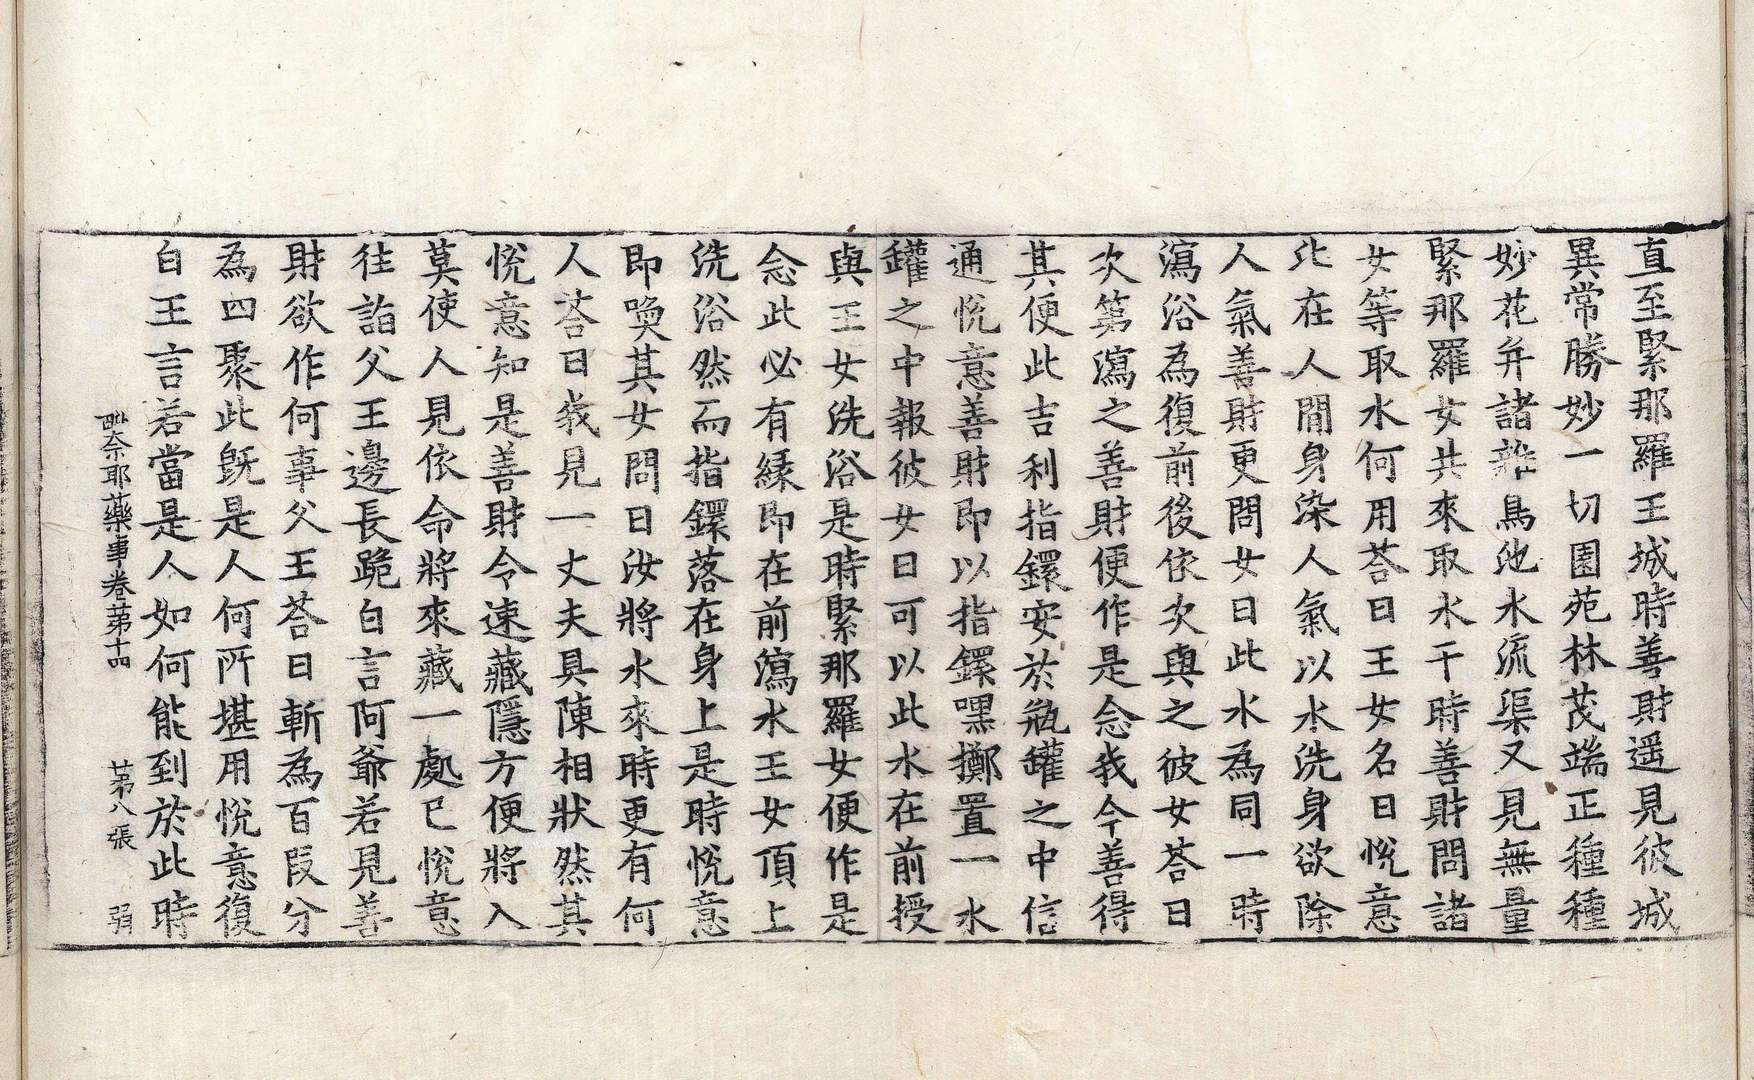 直至緊那羅王城時善財遥見彼城
異常勝妙一切園苑林茂端正種種
妙花弁諸雜鳥池水流渠又見無量
緊那羅女共來取水于時善財問諸
女等取水何用荅曰王女名曰恱意
比在人間身染人氣以水洗身欲除
人氣善財更問女曰此水為同一時
瀉浴為復前後依次與之彼女荅曰
次第瀉之善財便作是念我今善得
其便此吉利指鐶安於瓶罐之中信
通恱意善財即以指鐶嘿擲置一水
罐之中報彼女曰可以此水在前授
與王女洗浴是時緊那羅女便作是
念此必有縁即在前瀉水王女頂上
洗浴然而指鐶落在身上是時恱意
即喚其女問曰汝將水來時更有何
人荅曰我見一丈夫具陳相狀然其
恱意知是善財令速藏隱方便將入
莫使人見依命將來藏一處已恱意
往詣父王邊長跪白言阿爺若見善
財欲作何事父王荅曰斬為百段分
為四聚此旣是人何所堪用恱意復
白王言若當是人如何能到於此時
毗奈耶藥事卷苐十四 苐八張 弱